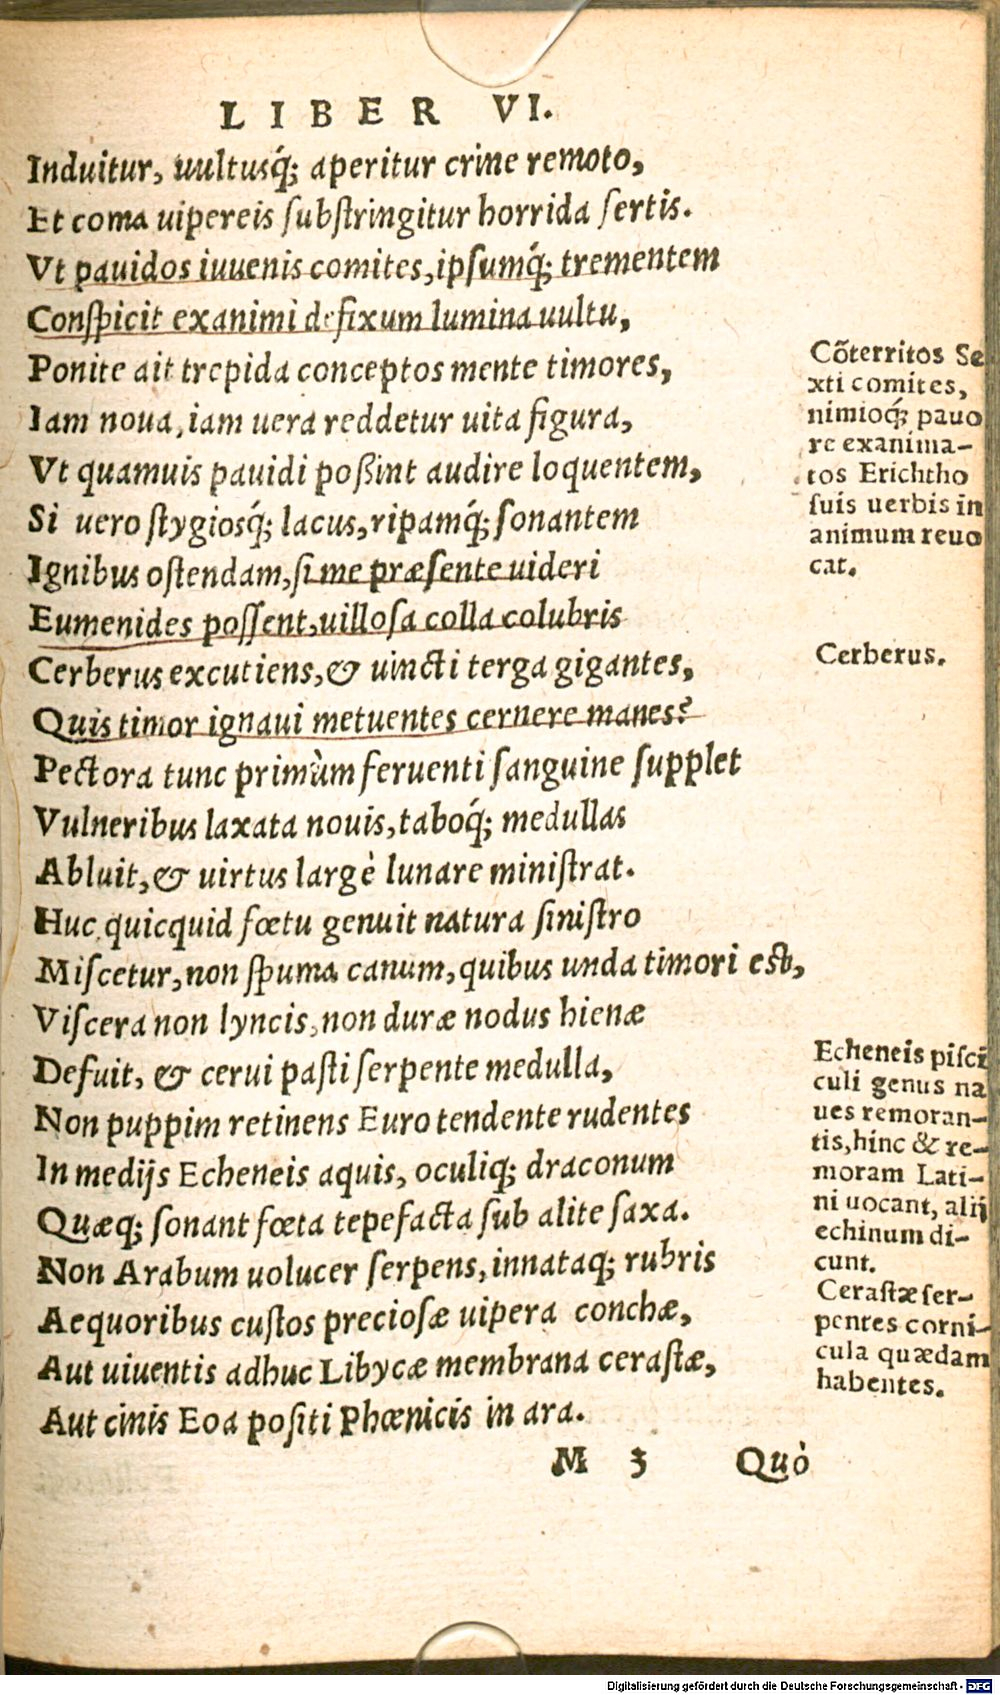 LIBER VI.
Induitur, uultusq́; aperitur crine remoto,
Et coma uipereis ſubſtringitur horrida ſertis.
Vt pauidos iuuenis comites, ipſumq́; trementem
Conſpicit exanimi defixum lumina uultu,
Ponite ait trepida conceptos mente timores,
Iam noua, iam uera reddetur uita figura,
Vt quamuis pauidi poßint audire loquentem,
Si uero ſtygiosq́; lacus, ripamq́; ſonantem
Ignibus oſtendam, ſi me præſente uideri
Eumenides poſſent, uilloſa colla colubris
Cerberus excutiens, & uincti terga gigantes,
Quis timor ignaui metuentes cernere manes?
Pectora tunc primùm feruenti ſanguine ſupplet
Vulneribus laxata nouis, taboq́; medullas
Abluit, & uirtus largè lunare miniſtrat.
Huc quicquid fœtu genuit natura ſiniſtro
Miſcetur, non ſpuma canum, quibus unda timori eſt,
Viſcera non lyncis, non duræ nodus hienæ
Defuit, & cerui paſti ſerpente medulla,
Non puppim retinens Euro tendente rudentes
In medijs Echeneis aquis, oculiq́; draconum
Quæq; ſonant fœta tepefacta ſub alite ſaxa.
Non Arabum uolucer ſerpens, innataq; rubris
Aequoribus cuſtos precioſæ uipera conchæ,
Aut uiuentis adhuc Libycæ membrana ceraſtæ,
Aut cinis Eoa poſiti Phœnicis in ara.
M 3 Quò
Cõterritos Se
xti comites,
nimioq́; pauo
re exanima-
tos Erichtho
ſuis uerbis in
animum reuo
cat.
Cerberus.
Echeneis piſci
culi genus na
ues remoran-
tis, hinc & re-
moram Lati-
ni uocant, alij
echinum di-
cunt.
Ceraſtæ ſer-
pentes corni-
cula quædam
habentes.
Digitalisierung gefördert durch die Deutsche Forschungsgemeinschaft - DFG